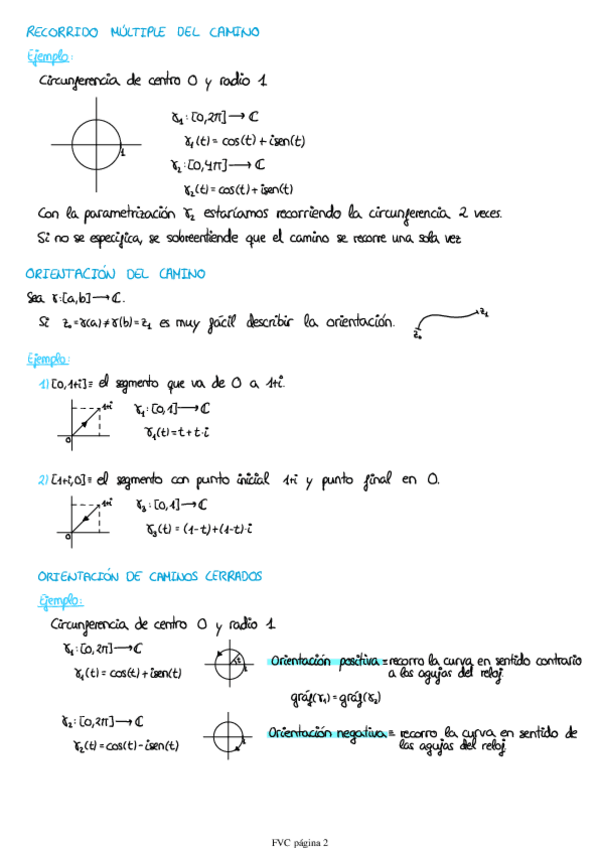 RECORRIDO MÚLTIPLE DEL CAMINO
Ejemplo:
Circunferencia de centro 0 y radio 1.
γ₁:[0,2π]→ℂ
γ₁(t)=cos(t)+isen(t)
1
γ₂:[0,4π]→ℂ
γ₂(t)=cos(t)+isen(t)
Con la parametrización γ₂ estaríamos recorriendo la circunferencia 2 veces.
Si no se especifica, se sobreentiende que el camino se recorre una sola vez
ORIENTACIÓN DEL CAMINO
Sea γ:[a,b]→ℂ.
Si z₀=γ(a)≠γ(b)=z₁ es muy fácil describir la orientación.
z₁
z₀
Ejemplo:
1) [0,1+i]≡ el segmento que va de 0 a 1+i.
1+i
γ₁:[0,1]→ℂ
γ₁(t)=t+t·i
0
2) [1+i,0]≡ el segmento con punto inicial 1+i y punto final en 0.
1+i
γ₃:[0,1]→ℂ
γ₃(t)=(1-t)+(1-t)·i
0
ORIENTACIÓN DE CAMINOS CERRADOS
Ejemplo:
Circunferencia de centro 0 y radio 1.
γ₁:[0,2π]→ℂ
γ₁(t)=cos(t)+isen(t)
Orientación positiva≡recorro la curva en sentido contrario
a las agujas del reloj.
gráf(γ₁)=gráf(γ₂)
γ₂:[0,2π]→ℂ
γ₂(t)=cos(t)-isen(t)
Orientación negativa≡ recorro la curva en sentido de
las agujas del reloj.
FVC página 2